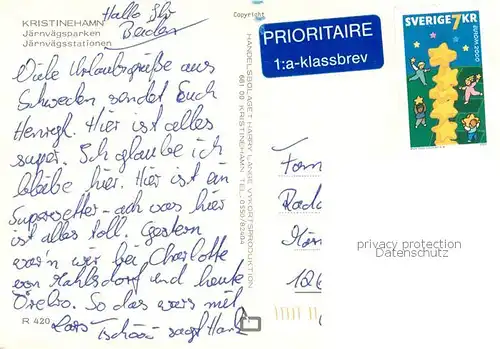 KRISTINEHAMN
Järnvägsparken
Järnvägsstationen
Hallo Ihr
Beiden
Viele Urlaubsgrüße aus
Schweden sendet Euch
Hier ist alles
super. Ich glaube ich
bleibe hier. Hier ist ein
Superwetter - ach was hier
ist alles toll. Gestern
war'n wir bei Charlotte
von Mahlsdorf und heute
Örebro. So das wars mit
tschüü sagt
R 420
Copyright
HANDELSBOLAGET HARRY LANGE VYKORTSPRODUKTION
681 00 KRISTINEHAMN TEL. 0550/82404
PRIORITAIRE
1:a-klassbrev
SVERIGE 7 KR
EUROPA 2000
privacy protection
Datenschutz